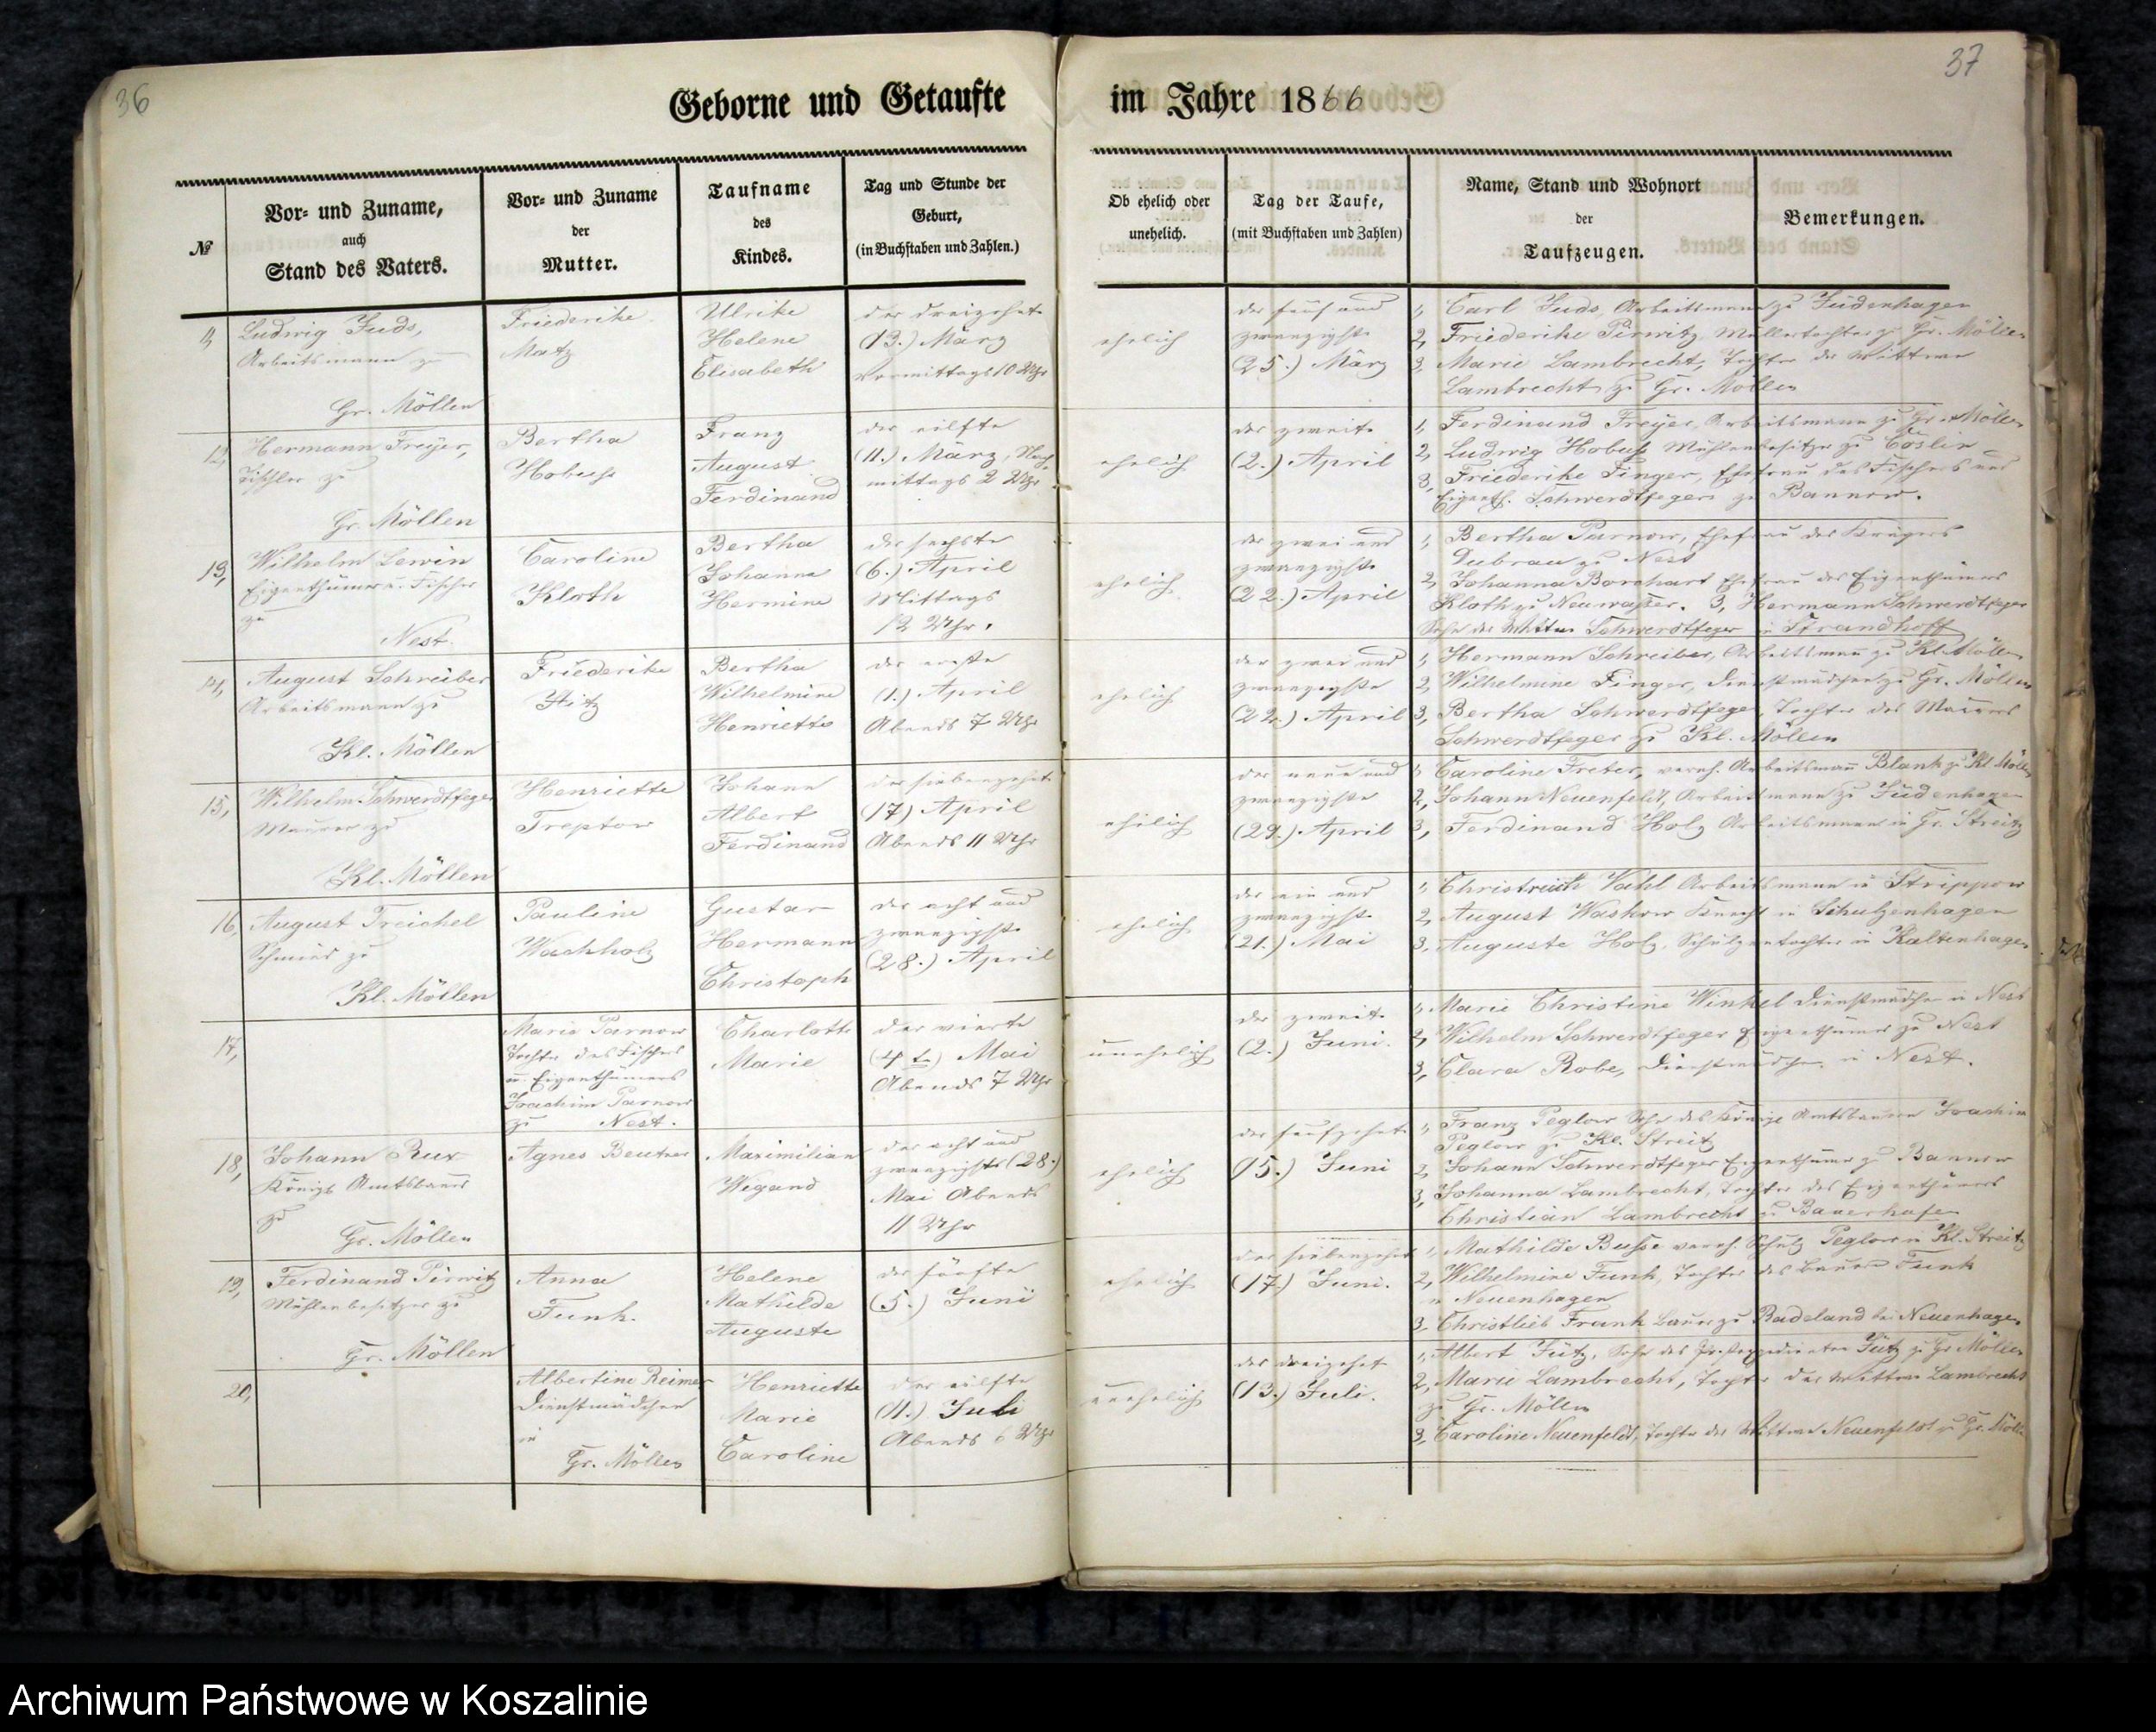 36
Geborne und Getaufte
№
Vor- und Zuname,
auch
Stand des Vaters.
Vor- und Zuname
der
Mutter.
Taufname
des
Kindes.
Tag und Stunde der
Geburt,
(in Buchstaben und Zahlen.)
11,
Ludwig Juds,
Arbeitsmann zu
Gr. Möllen
Friederike
Matz
Ulrike
Helene
Elisabeth
der dreizehnte
(13.) März
Vormittags 10 Uhr
12,
Hermann Freyer,
Tischler zu
Gr. Möllen
Bertha
Hobuss
Franz
August
Ferdinand
der eilfte
(11.) März, Nach-
mittags 2 Uhr
13,
Wilhelm Lewin
Eigenthümer u. Fischer
zu
Nest.
Caroline
Kloth
Bertha
Johanna
Hermine
der sechste
(6.) April
Mittags
12 Uhr.
14,
August Schreiber
Arbeitsmann zu
Kl. Möllen
Friederike
Bertha
Wilhelmine
Henriette
der erste
(1.) April
Abends 7 Uhr
15,
Wilhelm Schwerdtfeger
Maurer zu
Kl. Möllen
Henriette
Treptow
Johann
Albert
Ferdinand
der siebenzehnte
(17) April
Abends 11 Uhr
16,
August Treichel
Schmied zu
Kl. Möllen
Pauline
Wachholz
Gustav
Hermann
Christoph
der acht und
zwanzigste
(28.) April
17,
Marie Parnow
Tochter des Fischers
u. Eigenthümers
Joachim Parnow
zu Nest.
Charlotte
Marie
der vierte
(4 t.) Mai
Abends 7 Uhr
18,
Johann Rux
Königl. Amtsbauer
zu
Gr. Möllen
Agnes Beutner
Maximilian
Wigand
der acht und
zwanzigste (28.)
Mai Abends
11 Uhr
19,
Ferdinand Pirwitz
Mühlenbesitzer zu
Gr. Möllen
Anna
Funk.
Helene
Mathilde
Auguste
der fünfte
(5.) Juni
20,
Albertine Reimer
Dienstmädchen
in
Gr. Möllen
Henriette
Marie
Caroline
der eilfte
(11.) Juli
Abends 6 Uhr
37
im Jahre 1866
Ob ehelich oder
unehelich.
Tag der Taufe,
(mit Buchstaben und Zahlen)
Name, Stand und Wohnort
der
Taufzeugen.
Bemerkungen.
ehelich
der fünf und
zwanzigste
(25.) März
1, Carl Juds, Arbeitsmann zu Jüdenhagen
2, Friederike Pirwitz, Müllertochter zu Gr. Möllen
3, Marie Lambrecht, Tochter der Wittwe
Lambrecht zu Gr. Möllen
ehelich
der zweite
(2.) April
1, Ferdinand Freyer, Arbeitsmann zu Gr. Möllen
2, Ludwig Hobuss Mühlenbesitzer zu Cöslin
3, Friederike Finger, Ehefrau des Fischers und
Eigenth. Schwerdtfeger zu Bannow.
ehelich
der zwei und
zwanzigste
(22.) April
1, Bertha Parnow, Ehefrau des Krügers
Dubrau zu Nest
2, Johanna Borchart Ehefrau des Eigenthümers
Kloth zu Neuwasser. 3, Hermann Schwerdtfeger
Sohn der Wittwe Schwerdtfeger in Strandhoff
ehelich
der zwei und
zwanzigste
(22.) April
1, Hermann Schreiber, Arbeitsmann zu Kl. Möllen
2, Wilhelmine Finger, Dienstmädchen zu Gr. Möllen
3, Bertha Schwerdtfeger, Tochter des Maurers
Schwerdtfeger zu Kl. Möllen
ehelich
der neun und
zwanzigste
(29.) April
1, Caroline Freter, vereh. Arbeitsmann Blank zu Kl. Möllen
2, Johann Neuenfeldt, Arbeitsmann zu Jüdenhagen
3, Ferdinand Holz Arbeitsmann in Gr. Streitz
ehelich
der ein und
zwanzigste
(21.) Mai
1, Vahl Arbeitsmann in Strippow
2, August Waskow Knecht in Schulzenhagen
3, Auguste Holz, Schulzentochter in Kaltenhagen
unehelich
der zweite
(2.) Juni.
1, Marie Christine Winkel Dienstmädchen in Nest
2, Wilhelm Schwerdtfeger Eigenthümer zu Nest
3, Clara Robe, Dienstmädchen in Nest.
ehelich
der fünfzehnte
(15.) Juni
1, Franz Peglow Sohn des Königl. Amtsbauern Joachim
Peglow zu Kl. Streitz
2, Johann Schwerdtfeger Eigenthümer zu Bannow
3, Johanna Lambrecht, Tochter des Eigenthümers
Christian Lambrecht zu Bauerhufen
ehelich
der siebenzehnte
(17.) Juni.
1, Mathilde Busse vereh. Schulz Peglow in Kl. Streitz
2, Wilhelmine Funk, Tochter des Bauern Funk
in Neuenhagen
3, Christlieb Frank Bauer zu Badeland bei Neuenhagen
unehelich
der dreizehnte
(13.) Juli.
1, Albert Jütz, Sohn des Jütz zu Gr. Möllen
2, Marie Lambrecht, Tochter der Wittwe Lambrecht
zu Gr. Möllen
3, Caroline Neuenfeldt, Tochter der Wittwe Neuenfeldt zu Gr. Möllen
Archiwum Państwowe w Koszalinie